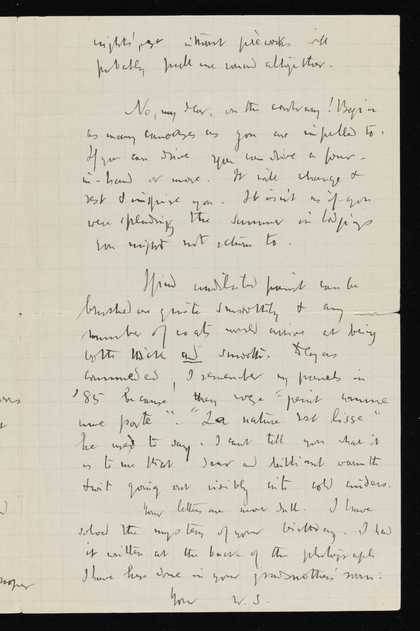 nights' ago without fireworks will
probably pull me round altogether.
No, my dear, on the contrary! Begin
as many canvases as you are impelled to.
If you can drive you can drive a four-
in-hand or more. It will change &
rest & inspire you. It isn't as if you
were spending the summer in lodgings
you might not return to.
I find undiluted paint can be
brushed on quite smoothly & any
number of coats would arrive at being
both thick and smooth. Degas
commended, I remember my panels in
'85 because they were "peint comme
une porte". "La nature est lisse"
he used to say. I can't tell you what it
is to me that dear and brilliant warmth
isn't going out visibly into cold cinders.
Your letters are never dull. I have
solved the mystery of your birthday. I had
it written at the back of the photograph
I have here done in your grandmother's room.
Your W.S.